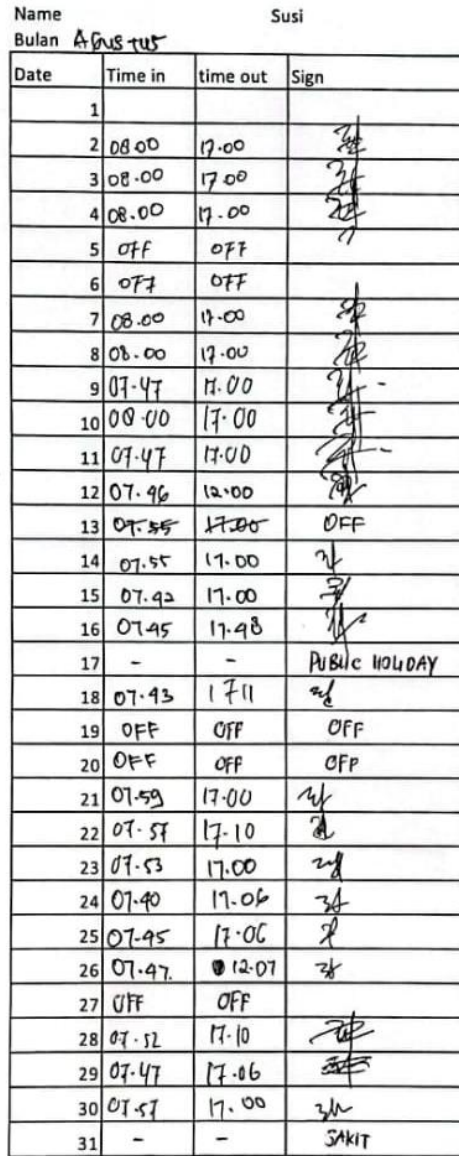 Name Susi
Bulan Agustus
Date Time in time out Sign
1
2 08.00 17.00
3 08.00 17.00
4 08.00 17.00
5 OFF OFF
6 OFF OFF
7 08.00 17.00
8 08.00 17.00
9 07.47 17.00
10 08.00 17.00
11 07.47 17.00
12 07.46 12.00
13 07.55 17.00 OFF
14 07.55 17.00
15 07.42 17.00
16 07.45 17.48
17 - - PUBLIC HOLIDAY
18 07.43 1711
19 OFF OFF OFF
20 OFF OFF OFF
21 07.59 17.00
22 07.57 17.10
23 07.53 17.00
24 07.40 17.06
25 07.45 17.06
26 07.47. 12.07
27 OFF OFF
28 07.52 17.10
29 07.47 17.06
30 07.57 17.00
31 - - SAKIT